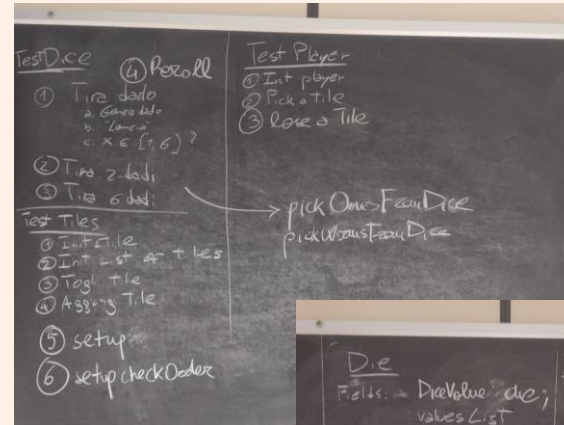 TestDice
④ Reroll
① Tira dado
a. Genera dado
b. "Lancia"
c. x ∈ [1,6] ?
② Tira 2 dadi
③ Tira 6 dadi
Test Tiles
① Init Tile
② Init List of tiles
③ Togli Tile
④ Aggiungi Tile
⑤ setup
⑥ setup checkOrder
Test Player
① Init player
② Pick a tile
③ Lose a Tile
pickOnesFromDice
pickWormsFromDice
Die
Fields: - DiceValue die;
values List